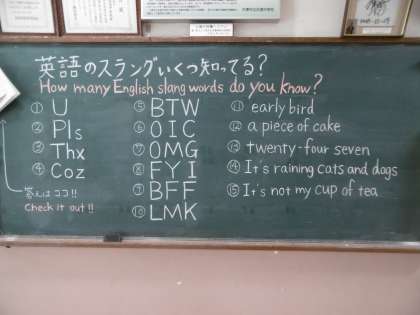 英語のスラングいくつ知ってる?
How many English slang words do you know?
① U
② Pls
③ Thx
④ Coz
答えはココ!!
Check it out!!
⑤ BTW
⑥ OIC
⑦ OMG
⑧ FYI
⑨ BFF
⑩ LMK
⑪ early bird
⑫ a piece of cake
⑬ twenty-four seven
⑭ It's raining cats and dogs
⑮ It's not my cup of tea